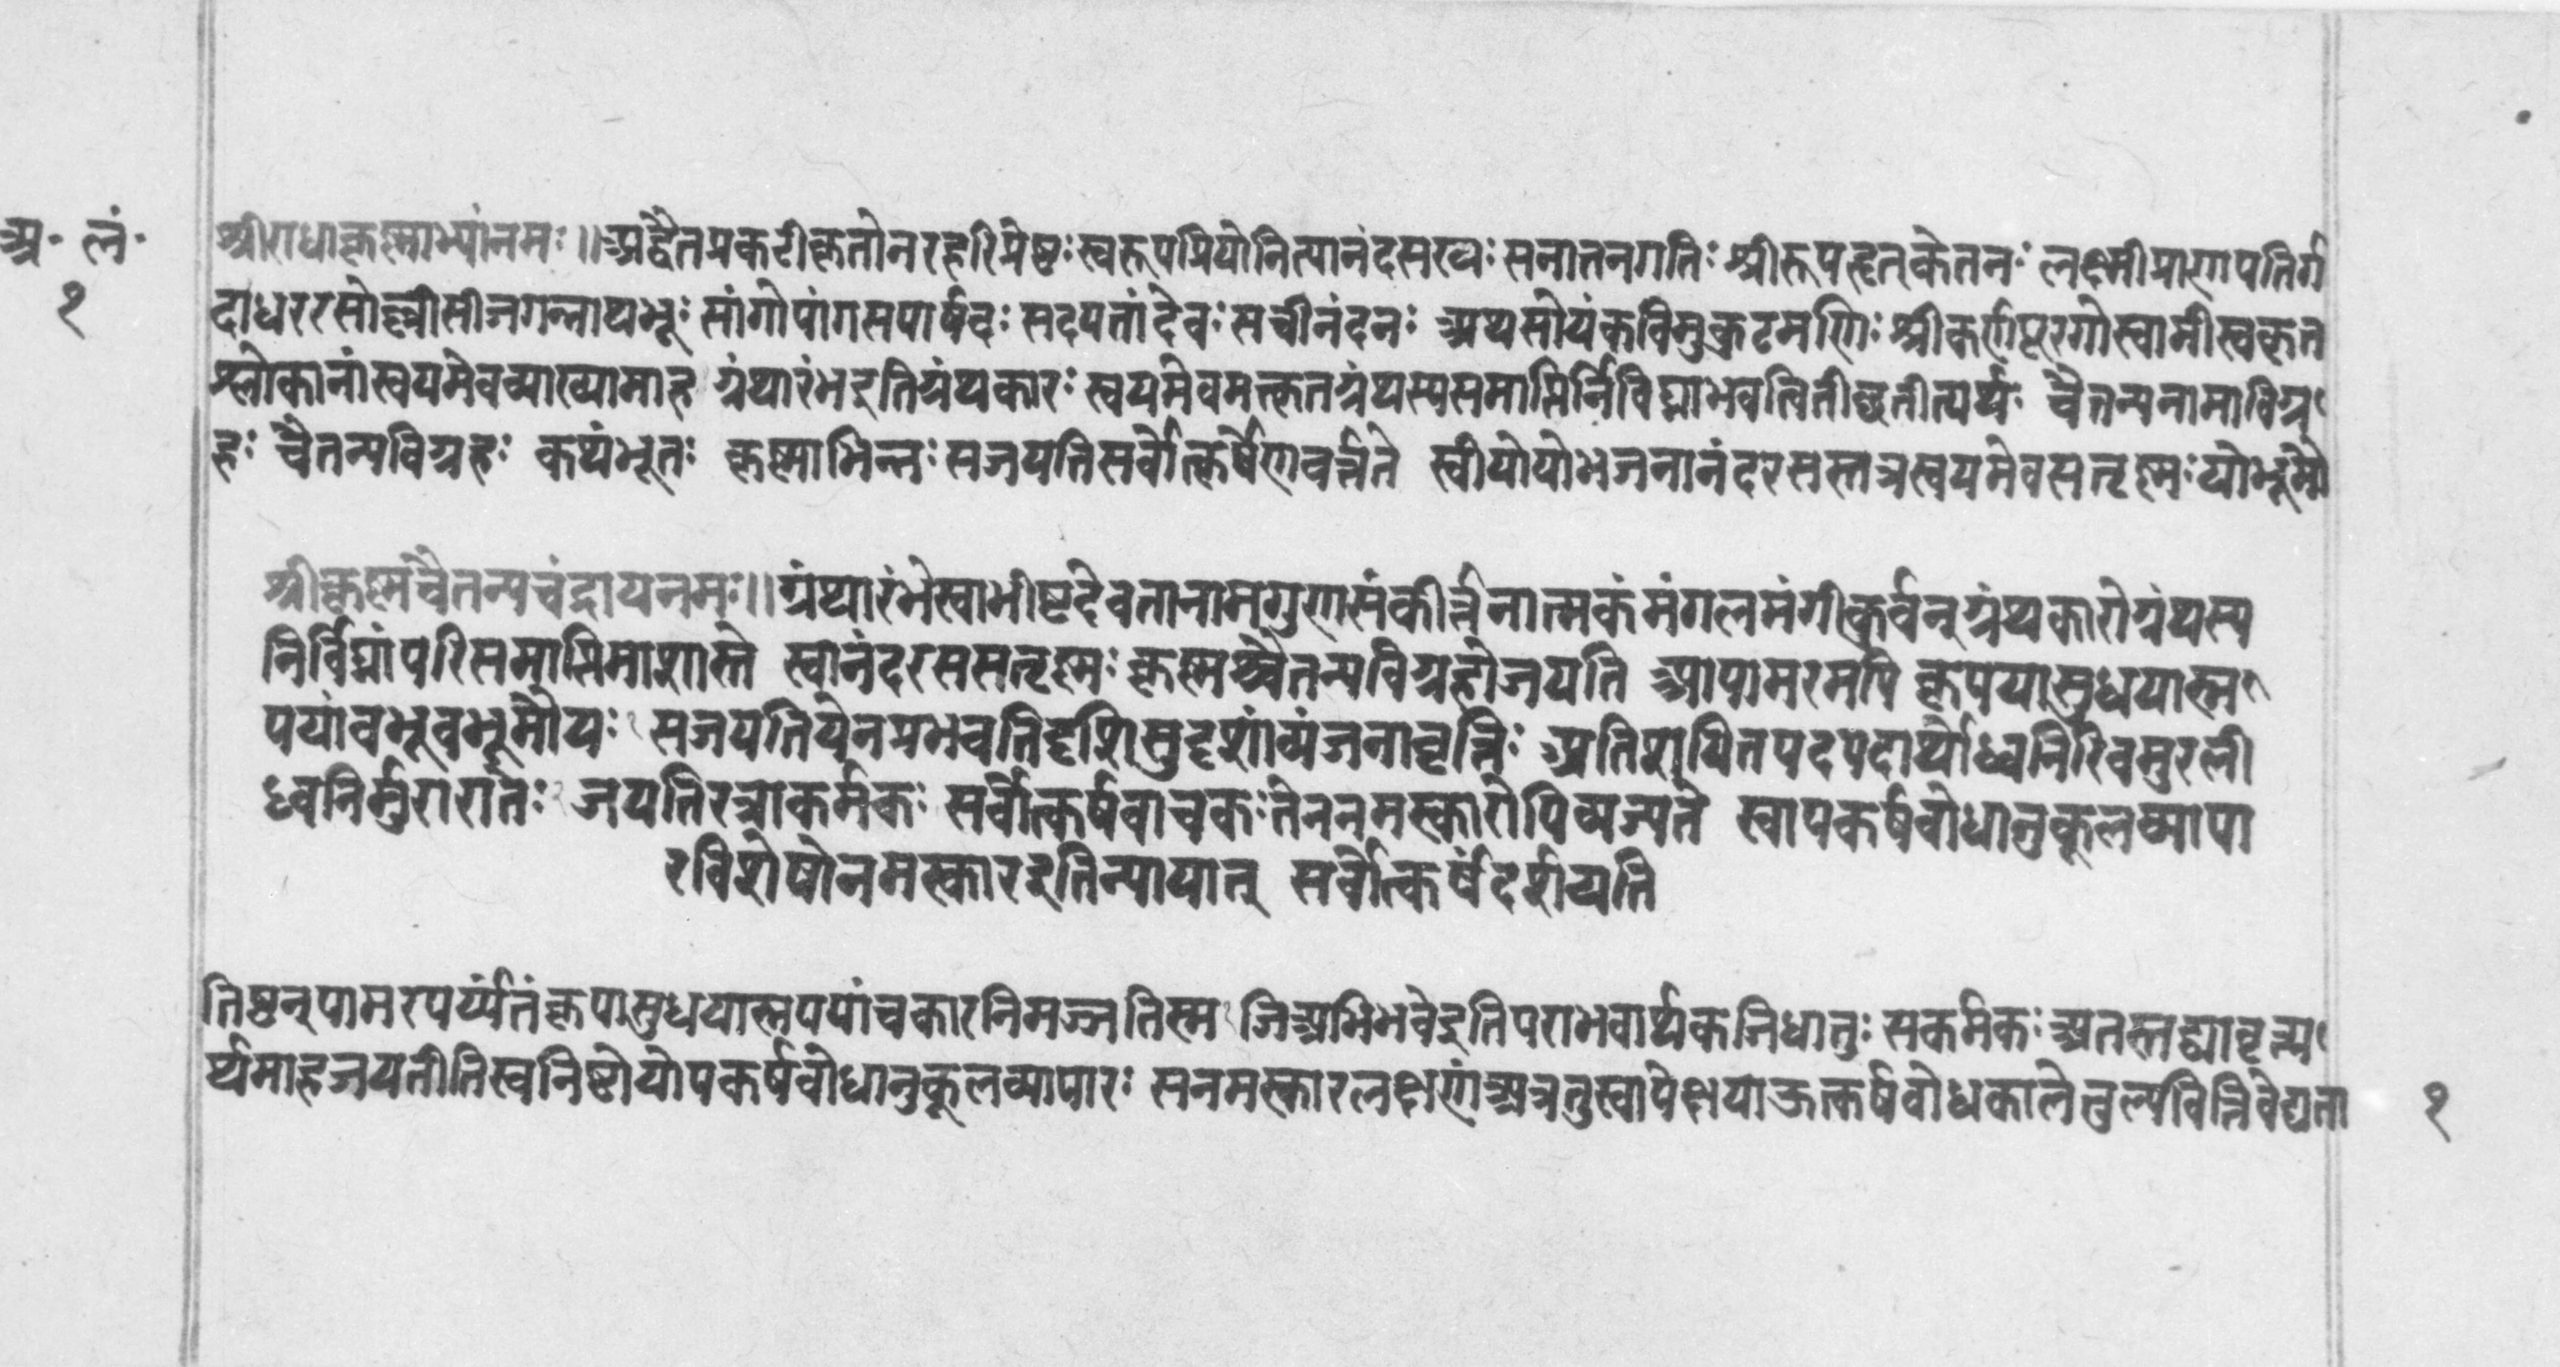 अ॰ लं॰
१
श्रीराधाकृष्णाभ्यांनमः॥अद्वैतप्रकटीकृतोनरहरिप्रेष्ठःस्वरूपप्रियोनित्यानंदसखः सनातनगतिः श्रीरूपहृतकेतनः लक्ष्मीप्राणपतिर्ग
दाधररसोल्लासीजगन्नाथभूः सांगोपांगसपार्षदः सदयतांदेवः सचीनंदनः अथसोयंकविमुकुटमणिः श्रीकर्णपूरगोस्वामीस्वकृत
श्लोकानांस्वयमेवव्याख्यामाह ग्रंथारंभइतिग्रंथकारः स्वयमेवमत्कृतग्रंथस्यसमाप्तिर्निर्विघ्नाभवत्वितीछतीत्यर्थः चैतन्यनामाविग्र
हः चैतन्यविग्रहः कथंभूतः कृष्णाभिन्नः सजयतिसर्वोत्कर्षेणवर्त्तते स्वीयोयोभजनानंदरसस्तत्रस्वयमेवसतृष्णः योभूमौ
श्रीकृष्णचैतन्यचंद्रायनमः॥ग्रंथारंभेस्वाभीष्टदेवतानामगुणसंकीर्त्तनात्मकंमंगलमंगीकुर्वन्ग्रंथकारोग्रंथस्य
निर्विघ्नांपरिसमाप्तिमाशास्ते स्वानंदरससतृष्णः कृष्णश्चैतन्यविग्रहोजयति आपामरमपि कृपयासुधयास्न
पयांवभूवभूमौयः सजयतियेनप्रभवतिदृशिसुदृशांव्यंजनावृत्तिः अतिशयितपदपदार्थोध्वनिरिवमुरली
ध्वनिर्मुरारातेः जयतिरत्राकर्मकः सर्वोत्कर्षवाचकःतेननमस्कारोपिव्यज्यते स्वापकर्षवोधानुकूलव्यापा
रविशेषोनमस्कारइतिन्यायात् सर्वोत्कर्षंदर्शयति
तिष्ठन्पामरपर्य्यंतंकृपासुधयास्नपयांचकारनिमज्जतिस्म जिअभिभवेइतिपराभवार्थकजिधातुः सकर्मकः अतस्तद्व्यावृत्त्य
र्थमाहजयतीतिस्वनिष्ठोयोपकर्षवोधानुकूलव्यापारः सनमस्कारलक्षणंअत्रतुस्वापेक्षयाऊत्कर्षवोधकालेतुल्यवित्तिवेद्यता
१